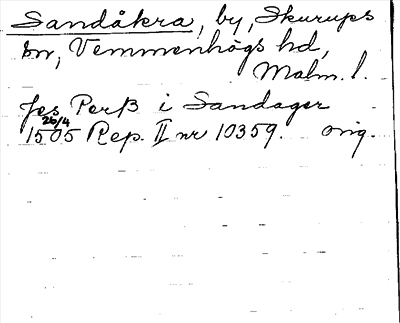 Sandåkra, by, Skurups
sn, Vemmenhögs hd,
Malm. l.
Jes Perß i Sandager
26/4
1505 Rep. II nr 10359. orig.